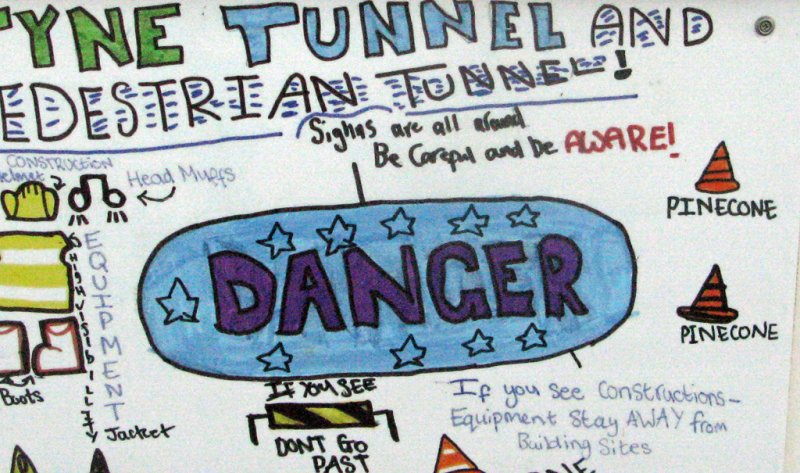 TYNE TUNNEL AND
PEDESTRIAN TUNNEL!
Sighns are all around
Be Careful and be AWARE!
CONSTRUCTION
Helmet
Head Muffs
PINECONE
EQUIPMENT
HIGH VISIBILLITY
Jacket
DANGER
PINECONE
Boots
IF YOU SEE
DONT GO
PAST
If you see Constructions-
Equipment Stay AWAY from
Building Sites